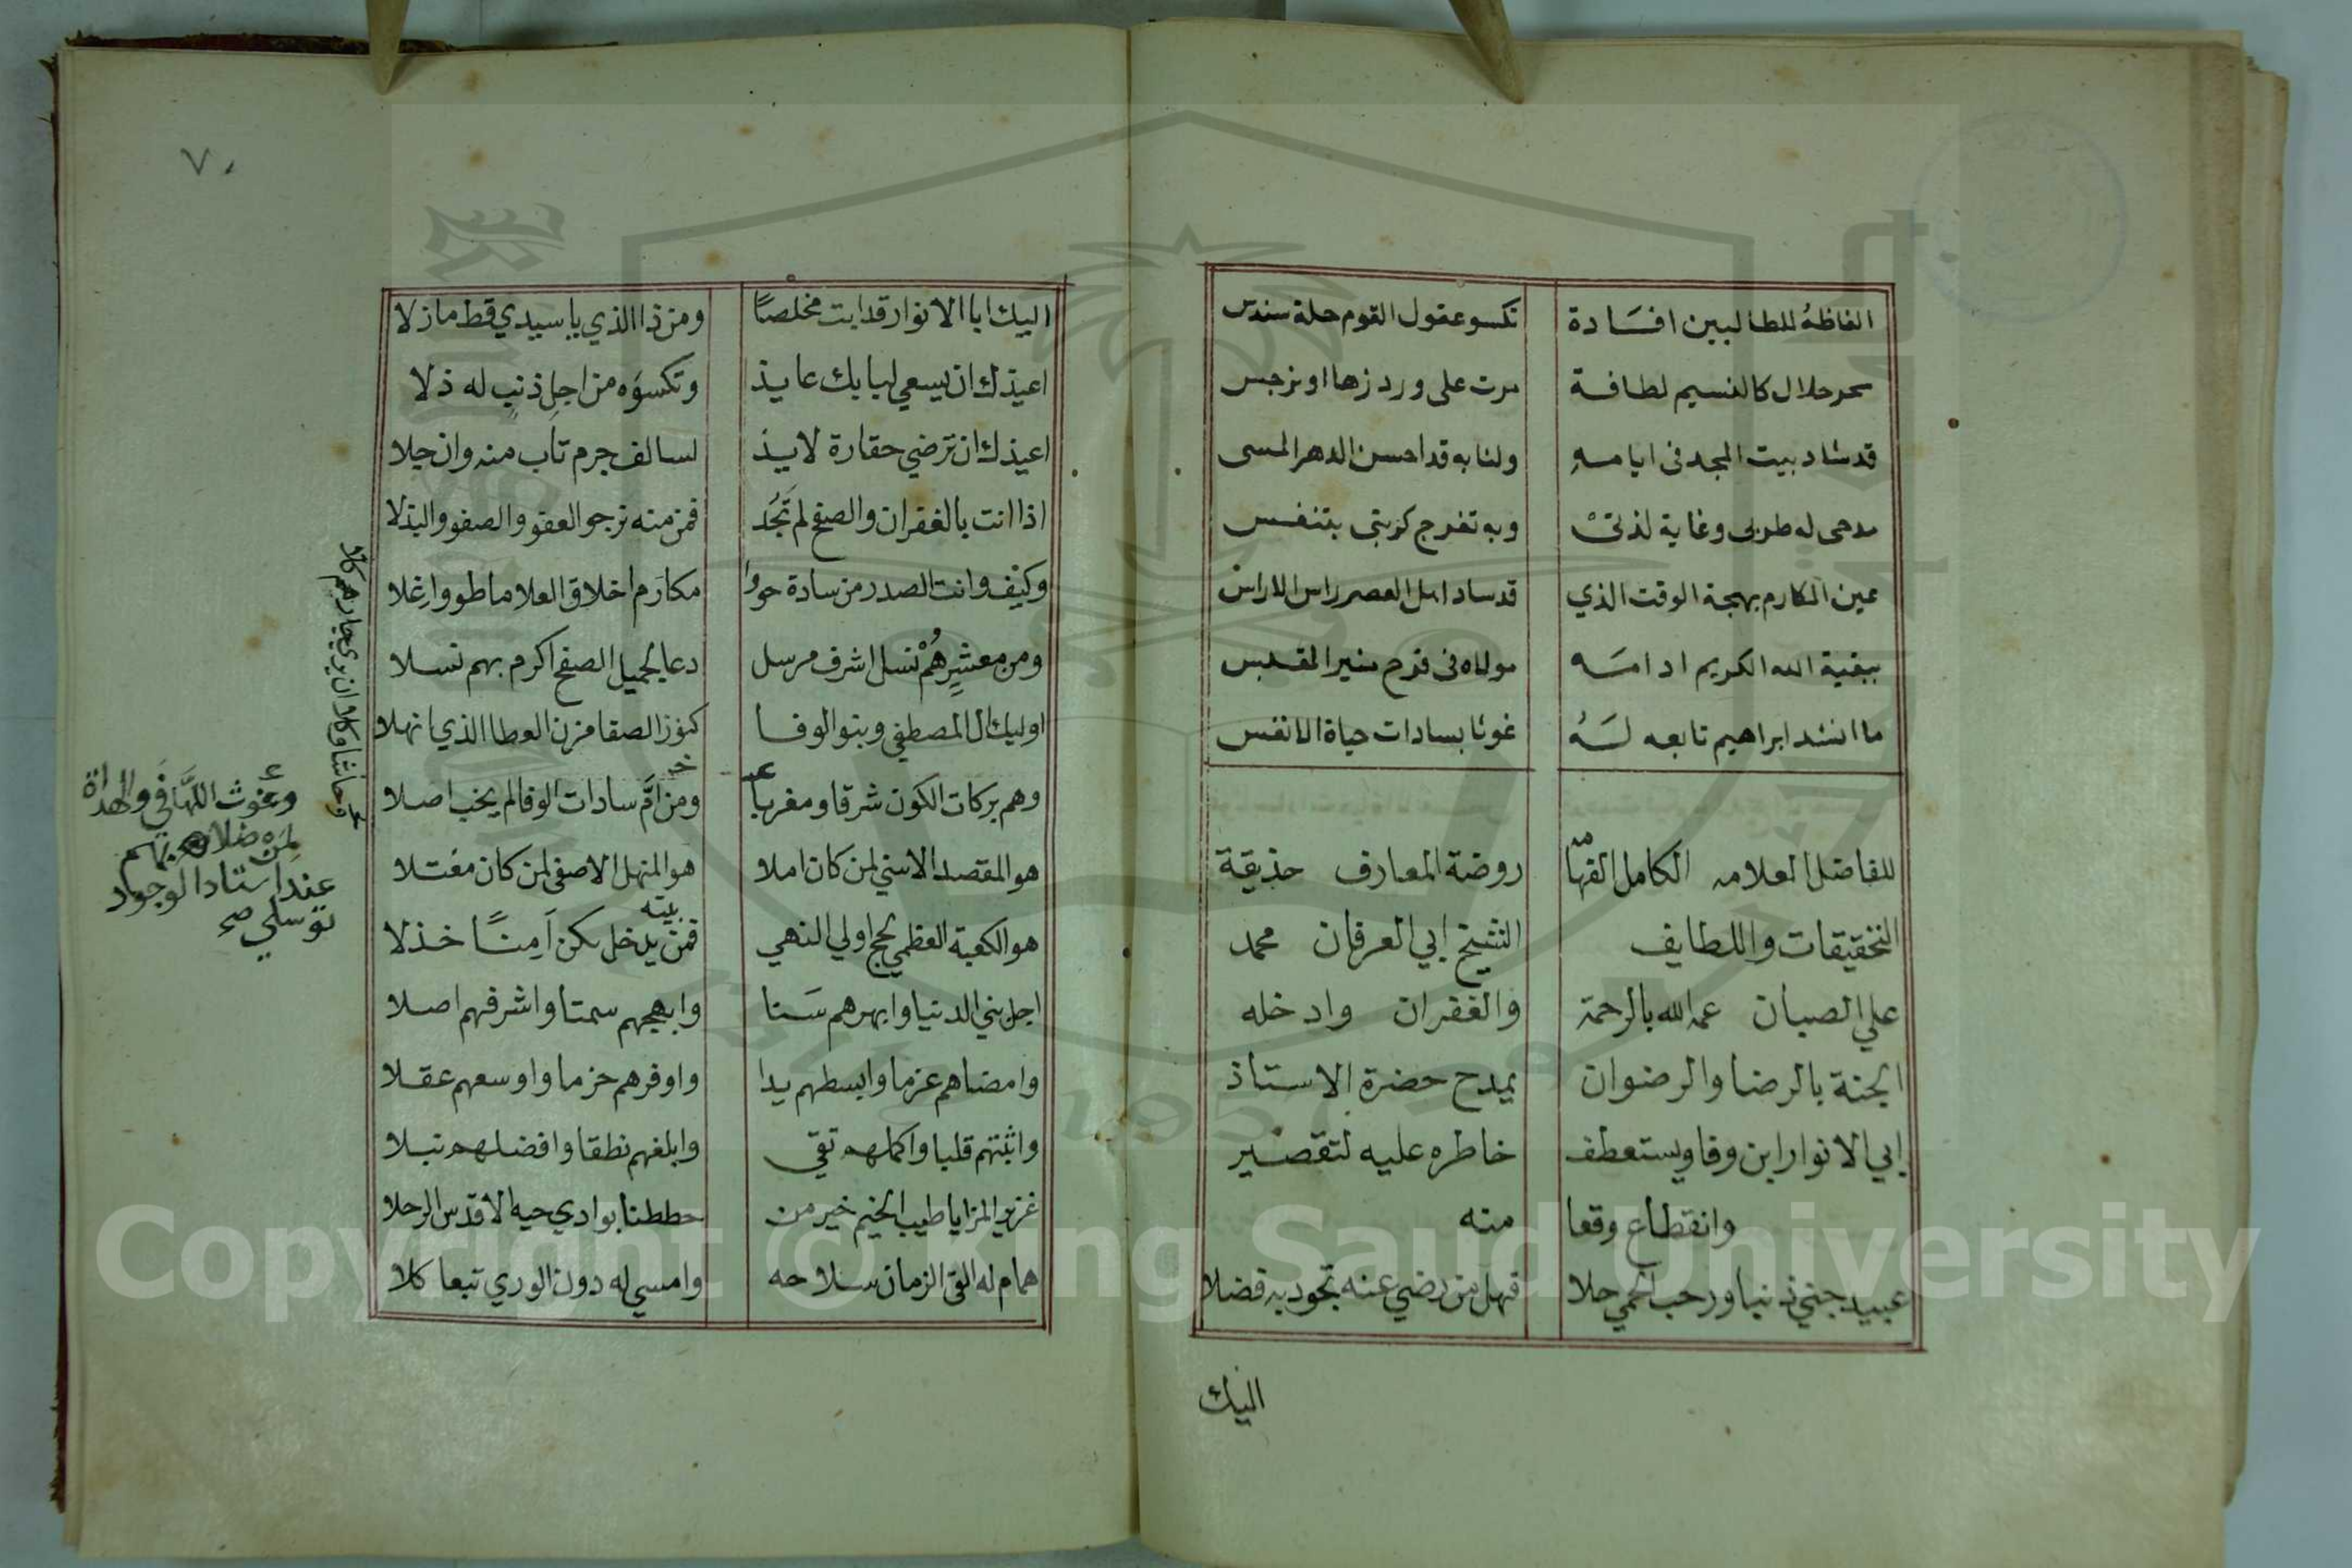 الفاظهُ للطالبين افسَادة تكسو عقول القوم حلة سندس
سحر حلال كالنسيم لطافة مرت على ورد زها او نرجس
قد شاد بيت المجد فى ايامه ولنا به قد احسن الدهر المسى
مدحى له طربى وغاية لذتى وبه تفرج كربتى بتنفس
عين المكارم بهجة الوقت الذي قد ساد اهل العصر راس الاراس
ببقية الله الكريم ادامَه مولاه فى فرح منير المقدس
ما انشد ابراهيم تابعه لَهُ غوثا بسادات حياة الانفس
للفاضل العلامه الكامل الفهّامه روضة المعارف حذيقة
التحقيقات واللطايف الشيخ ابي العرفان محمد
علي الصبان عمه الله بالرحمة والغفران وادخله
الجنة بالرضا والرضوان يمدح حضرة الاستاذ
ابي الانوار ابن وفا ويستعطف خاطره عليه لتقصير
وانقطاع وقعا منه
عبيد جني ذنبا ورحب الحمي حلا فهل من رضي عنه تجود به فضلا
اليك
٧٠
اليك ابا الانوار قد ابت مخلصًا ومن ذا الذي يا سيدي قط ما زلا
اعيذك ان يسعي لبابك عايذ وتكسوَه من اجل ذنبٍ له ذلا
اعيذك ان ترضي حقارة لايذ لسالف جرم تاب منه وان جلا
اذا انت بالغفران والصفح لم تَجُد فمن منه نرجو العفو والصفو والبذلا
وكيف وانت الصدر من سادة حووا مكارم اخلاق العلا ما طووا غلا
ومن معشرٍ هُمْ نسل اشرف مرسل دعا لجميل الصفح اكرم بهم نسلا
اوليك ال المصطفي وبنو الوفا كنوز الصفا مزن العطا الذي انهلا
وهم بركات الكون شرقا ومغربا ومن امَّ سادات الوفا لم يخب اصلا
هو المقصد الاسني لمن كان املا هو المنهل الاصفى لمن كان مغتلا
هو الكعبة العظمي لحج اولي النهي فمن يدخل بيته يكن آمنًا خذلا
اجل بني الدنيا وابهرهم سَنا وابهجهم سمتا واشرفهم اصلا
وامضاهم عزما وابسطهم يدا واوفرهم حزما واوسعهم عقلا
واثبتهم قلبا واكملهم تقي وابلغهم نطقا وافضلهم نبلا
غزير المزايا طيب الخيم خير من حططنا بوادي حيه الاقدس الرحلا
همام له القى الزمان سلاحه وامسي له دون الوري تبعا كلا
وحاشا وكلا ان يري جارهم كلا
وغوث اللهافي والهداة
لمن ضلا بهم
عند استاد الوجود
توسلي صح
Copyright © King Saud University
1957